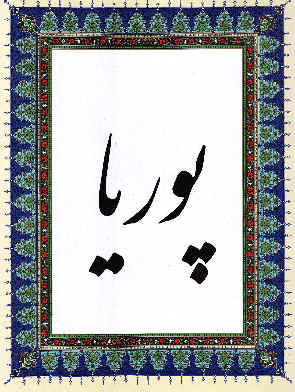 پوریا